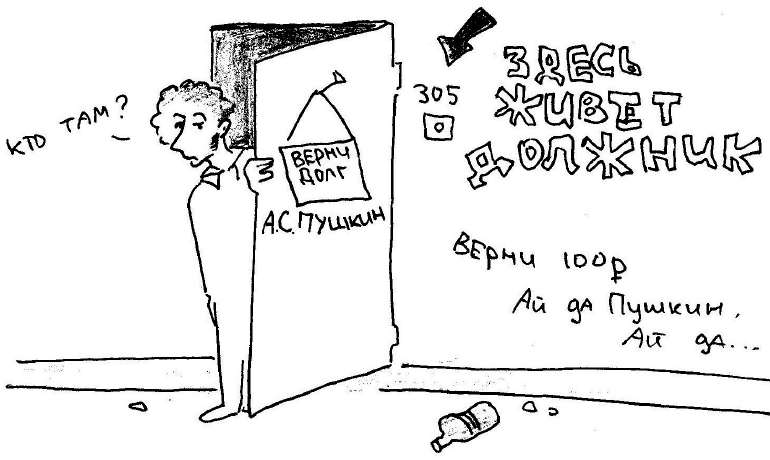 КТО ТАМ?
ВЕРНИ
ДОЛГ
А.С. ПУШКИН
305
ЗДЕСЬ
ЖИВЕТ
ДОЛЖНИК
ВЕРНИ 100₽
Ай да Пушкин,
Ай да...